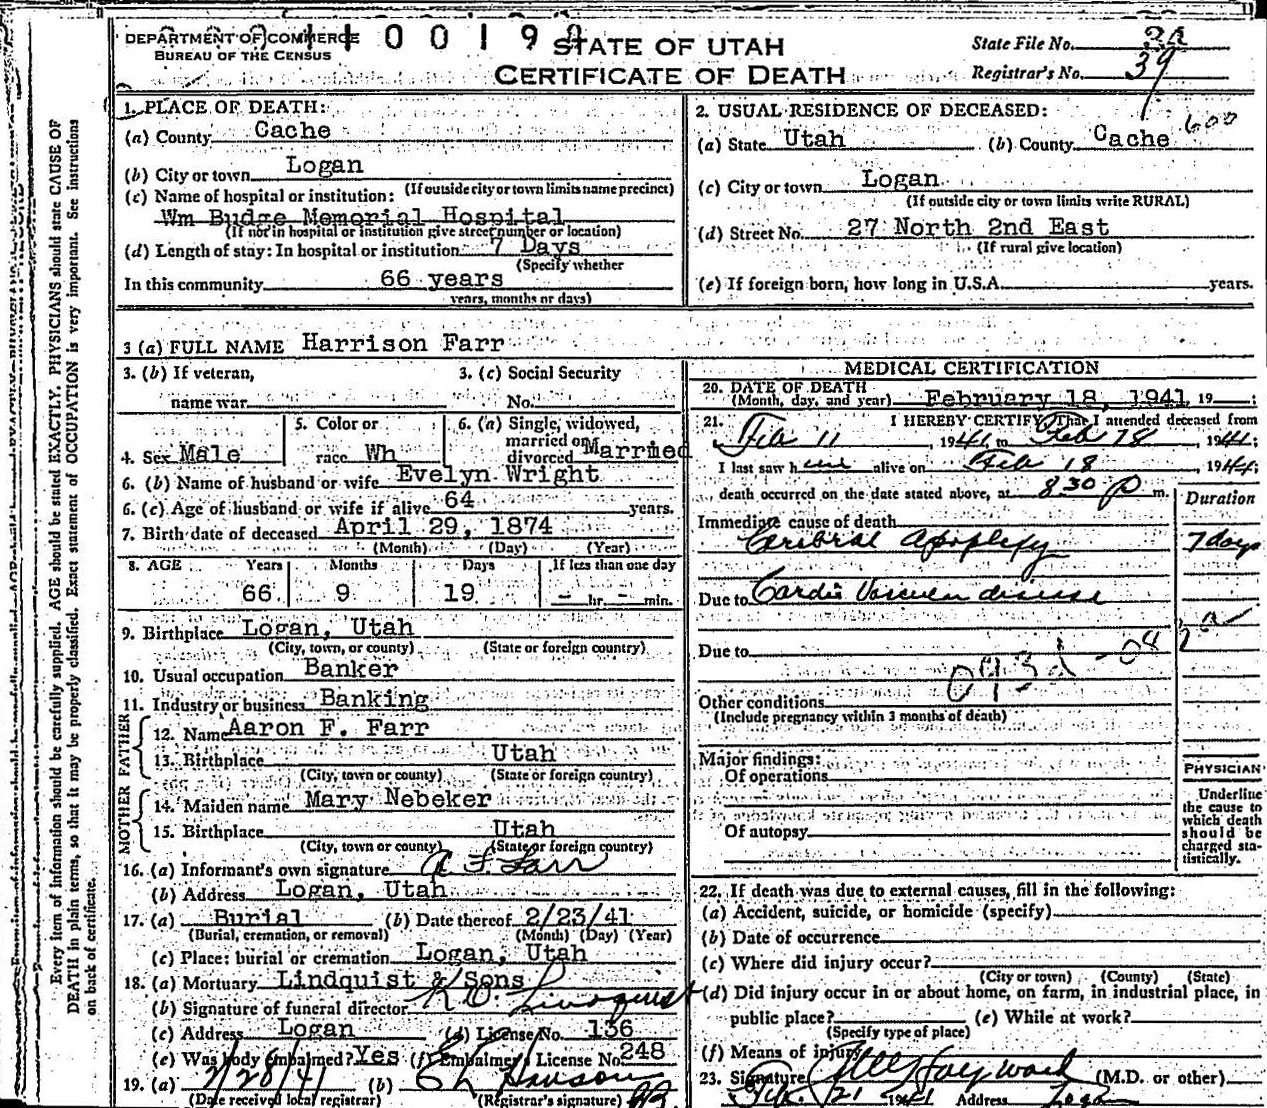 DEPARTMENT OF COMMERCE
BUREAU OF THE CENSUS
1 0 0 1 9
STATE OF UTAH
CERTIFICATE OF DEATH
State File No.
Registrar's No. 39
Every item of information should be carefully supplied. AGE should be stated EXACTLY. PHYSICIANS should state CAUSE OF
DEATH in plain terms, so that it may be properly classified. Exact statement of OCCUPATION is very important. See instructions
on back of certificate.
1. PLACE OF DEATH:
(a) County Cache
(b) City or town Logan
(If outside city or town limits name precinct)
(c) Name of hospital or institution:
Wm Budge Memorial Hospital
(If not in hospital or institution give street number or location)
(d) Length of stay: In hospital or institution 7 Days
(Specify whether
In this community 66 years
years, months or days)
2. USUAL RESIDENCE OF DECEASED:
(a) State Utah (b) County Cache 600
(c) City or town Logan
(If outside city or town limits write RURAL)
(d) Street No. 27 North 2nd East
(If rural give location)
(e) If foreign born, how long in U.S.A. years.
3 (a) FULL NAME Harrison Farr
3. (b) If veteran, name war
3. (c) Social Security No.
4. Sex Male
5. Color or race Wh
6. (a) Single, widowed, married or divorced Married
6. (b) Name of husband or wife Evelyn Wright
6. (c) Age of husband or wife if alive 64 years.
7. Birth date of deceased April 29, 1874
(Month) (Day) (Year)
8. AGE Years Months Days If less than one day
66 9 19 - hr. - min.
9. Birthplace Logan, Utah
(City, town, or county) (State or foreign country)
10. Usual occupation Banker
11. Industry or business Banking
FATHER
12. Name Aaron F. Farr
13. Birthplace Utah
(City, town or county) (State or foreign country)
MOTHER
14. Maiden name Mary Nebeker
15. Birthplace Utah
(City, town or county) (State or foreign country)
16. (a) Informant's own signature A F Farr
(b) Address Logan, Utah
17. (a) Burial (b) Date thereof 2/23/41
(Burial, cremation, or removal) (Month) (Day) (Year)
(c) Place: burial or cremation Logan, Utah
18. (a) Mortuary Lindquist & Sons
(b) Signature of funeral director Lindquist
(c) Address Logan (d) License No. 136
(e) Was body embalmed? Yes (f) Embalmer License No. 248
19. (a) 2/28/41 (b) Hanson
(Date received local registrar) (Registrar's signature)
MEDICAL CERTIFICATION
20. DATE OF DEATH
(Month, day, and year) February 18, 1941, 19 ;
21. I HEREBY CERTIFY That I attended deceased from
Feb 11, 1941, to Feb 18, 1941;
I last saw him alive on Feb 18, 1941;
death occurred on the date stated above, at 8 30 p m.
Duration
Immediate cause of death
Cerebral apoplexy 7 days
Due to Cardio Vascular disease
Due to
093d - 08
Other conditions
(Include pregnancy within 3 months of death)
Major findings:
Of operations
Of autopsy
PHYSICIAN
Underline
the cause to
which death
should be
charged sta-
tistically.
22. If death was due to external causes, fill in the following:
(a) Accident, suicide, or homicide (specify)
(b) Date of occurrence
(c) Where did injury occur?
(City or town) (County) (State)
(d) Did injury occur in or about home, on farm, in industrial place, in
public place? (e) While at work?
(Specify type of place)
(f) Means of injury
23. Signature Hayward (M.D. or other)
Feb. 21 1941 Address Logan